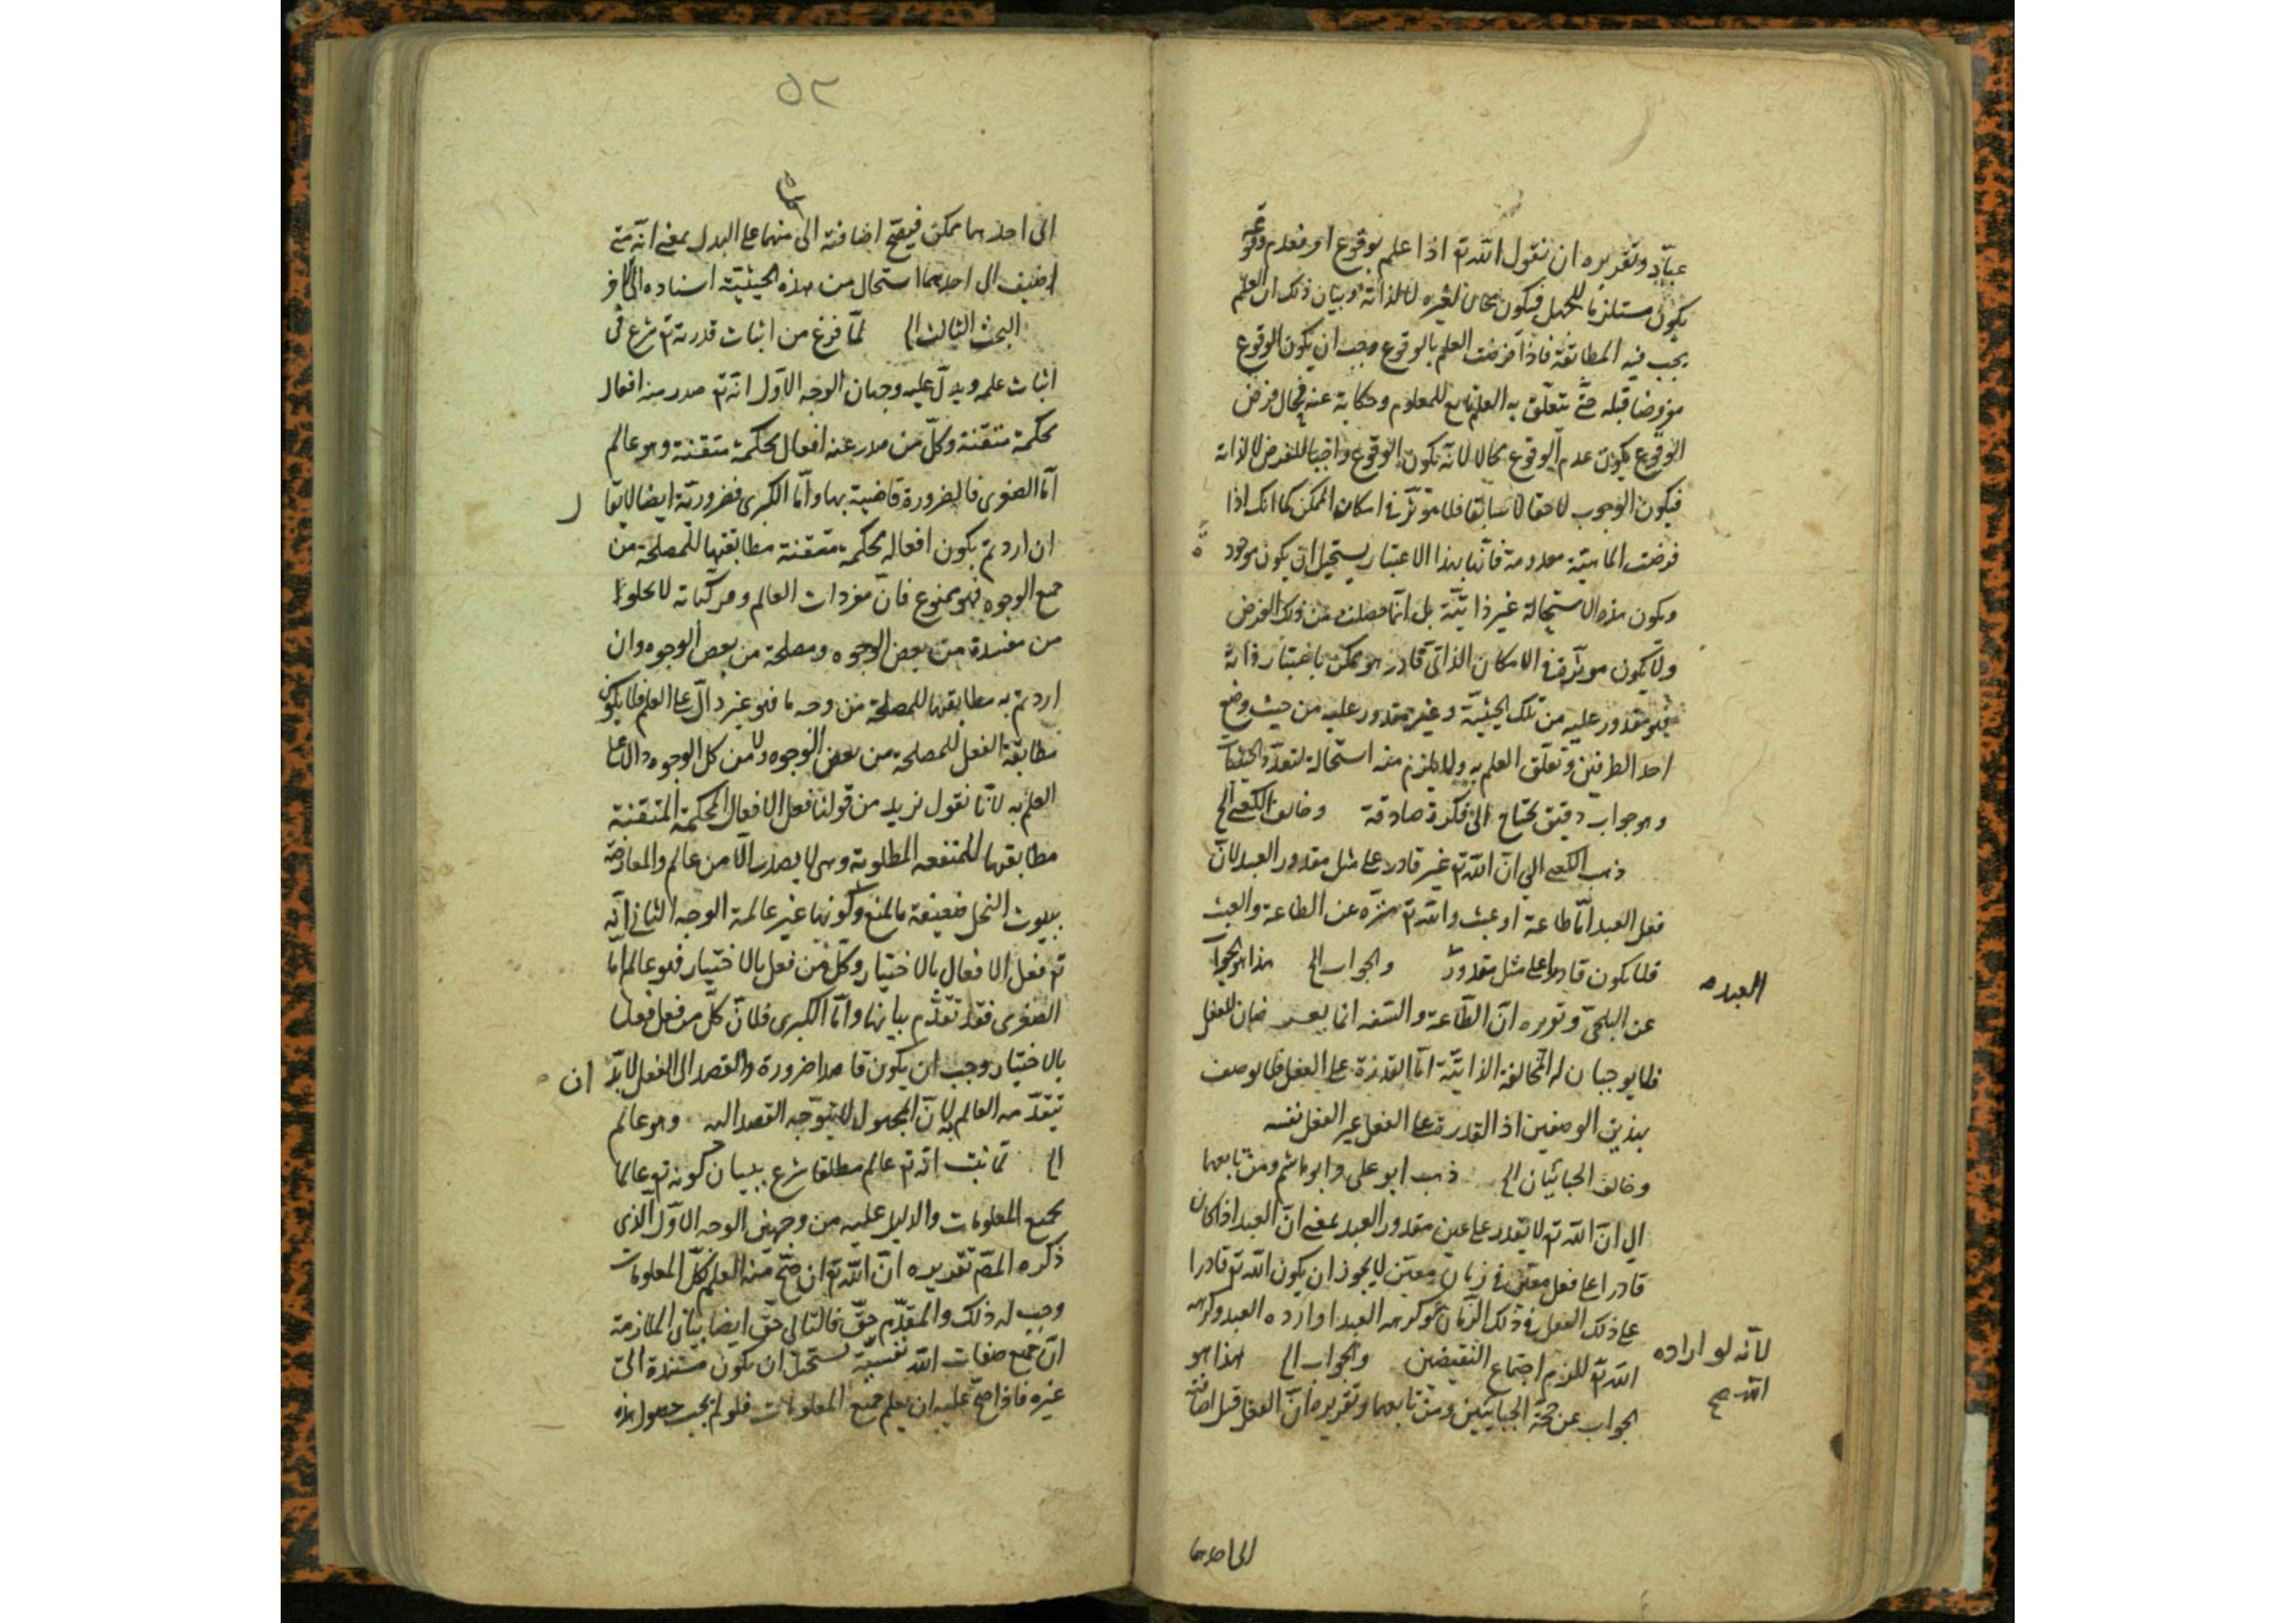 عباد وتقريره ان نقول الله تع اذا علم بوقوع امر فعدم وقوعه
يكون مستلزما للجهل فيكون محالا لغيره لا لذاته وبيان ذلك ان العلم
يجب فيه المطابقة فاذا فرضت العلم بالوقوع وجب ان يكون الوقوع
مفروضا قبله حتى يتعلق به العلم تابع للمعلوم وحكاية عنه فحال فرض
الوقوع يكون عدم الوقوع محالا لانه يكون الوقوع واجبا للفرض لا لذاته
فيكون الوجوب لاحقا لا سابقا فلا يؤثر في امكان الممكن كما انك اذا
فرضت الماهية معدومة فانها بهذا الاعتبار يستحيل ان يكون موجودة
ويكون هذه الاستحالة غير ذاتية بل انما حصلت من ذلك الفرض
ولا يكون مؤثرة في الامكان الذاتي قادر هو ممكن باعتبار ذاته
فهو مقدور عليه من تلك الحيثية وغير مقدور عليه من حيث وضع
احد الطرفين وتعلق العلم به ولا يلزم منه استحالة لتعدد الحيثيات
وهو جواب دقيق يحتاج الى فكرة صادقة وخالف الكعبي الخ
ذهب الكعبي الى ان الله تع غير قادر على مثل مقدور العبد لان
فعل العبد اما طاعة او عبث والله تع منزه عن الطاعة والعبث
فلا يكون قادرا على مثل مقدور والجواب الخ هذا هو الجواب
العبد
عن البلخي وتقريره ان الطاعة والسفه انما صفتان للفعل
فلا يوجبان له المخالفة الذاتية اما القدرة على الفعل فلا يوصف
بهذين الوصفين اذ القدرة على الفعل غير الفعل نفسه
وخالف الجبائيان الخ ذهب ابو علي وابو هاشم ومن تابعهما
الى ان الله تع لا يقدر على عين مقدور العبد بمعنى ان العبد اذا كان
قادرا على فعل معين في زمان معين لا يجوز ان يكون الله تع قادرا
على ذلك الفعل في ذلك الزمان كرهه العبد او اراده العبد وكرهه
لانه لو اراده
الله صح
الله تع للزم اجتماع النقيضين والجواب الخ هذا هو
الجواب عن حجة الجبائيين ومن تابعهما وتقريره ان الفعل قبل اضافته
الى احدهما
٥٢
الى احدهما ممكن فيصح اضافته الى منهما على البدل بمعنى انه متى
كل
اضيف الى احدهما استحال من هذه الحيثية اسناده الى الآخر
البحث الثالث الخ لما فرغ من اثبات قدرته تع شرع في
اثبات علمه ويدل عليه وجهان الوجه الاول انه تع صدر منه افعال
محكمة متقنة وكل من صدر عنه افعال محكمة متقنة وهو عالم
اما الصغرى فالضرورة قاضية بها واما الكبرى فضرورية ايضا لا يقال
ان اردتم بكون افعاله محكمة متقنة مطابقتها للمصلحة من
جميع الوجوه فهو ممنوع فان مفردات العالم ومركباته لا يخلو
من مفسدة من بعض الوجوه ومصلحة من بعض الوجوه وان
اردتم به مطابقتها للمصلحة من وجه ما فهو غير دال على العلم فلا يكون
مطابقة الفعل للمصلحة من بعض الوجوه ولا من كل الوجوه دالا على
العلم به لانا نقول نريد من قولنا فعل الافعال المحكمة المتقنة
مطابقتها للمنفعة المطلوبة وهي لا يصدر الا من عالم والمعارضة
ببيوت النحل ضعيفة بالمنع وكونها غير عالمة الوجه الثاني انه
تع فعل الافعال بالاختيار وكل من فعل بالاختيار فهو عالم اما
الصغرى فقد تقدم بيانها واما الكبرى فلان كل من فعل فعلا
بالاختيار وجب ان يكون قاصدا ضرورة والقصد الى الفعل لابد ان
يتقدمه العالم به لان المجهول لا يتوجه القصد اليه وهو عالم
الخ لما ثبت انه تع عالم مطلقا شرع ببيان كونه تع عالما
بجميع المعلومات والدليل عليه من وجهين الوجه الاول الذي
ذكره المص تقديره ان الله تع ان صح منه العلم بكل المعلومات
وجب له ذلك والمقدم حق فالتالي حق ايضا بيان الملازمة
ان جميع صفات الله نفسية يستحيل ان يكون مستندة الى
غيره فاذا صح عليه ان يعلم جميع المعلومات فلو لم يجب حصول هذه